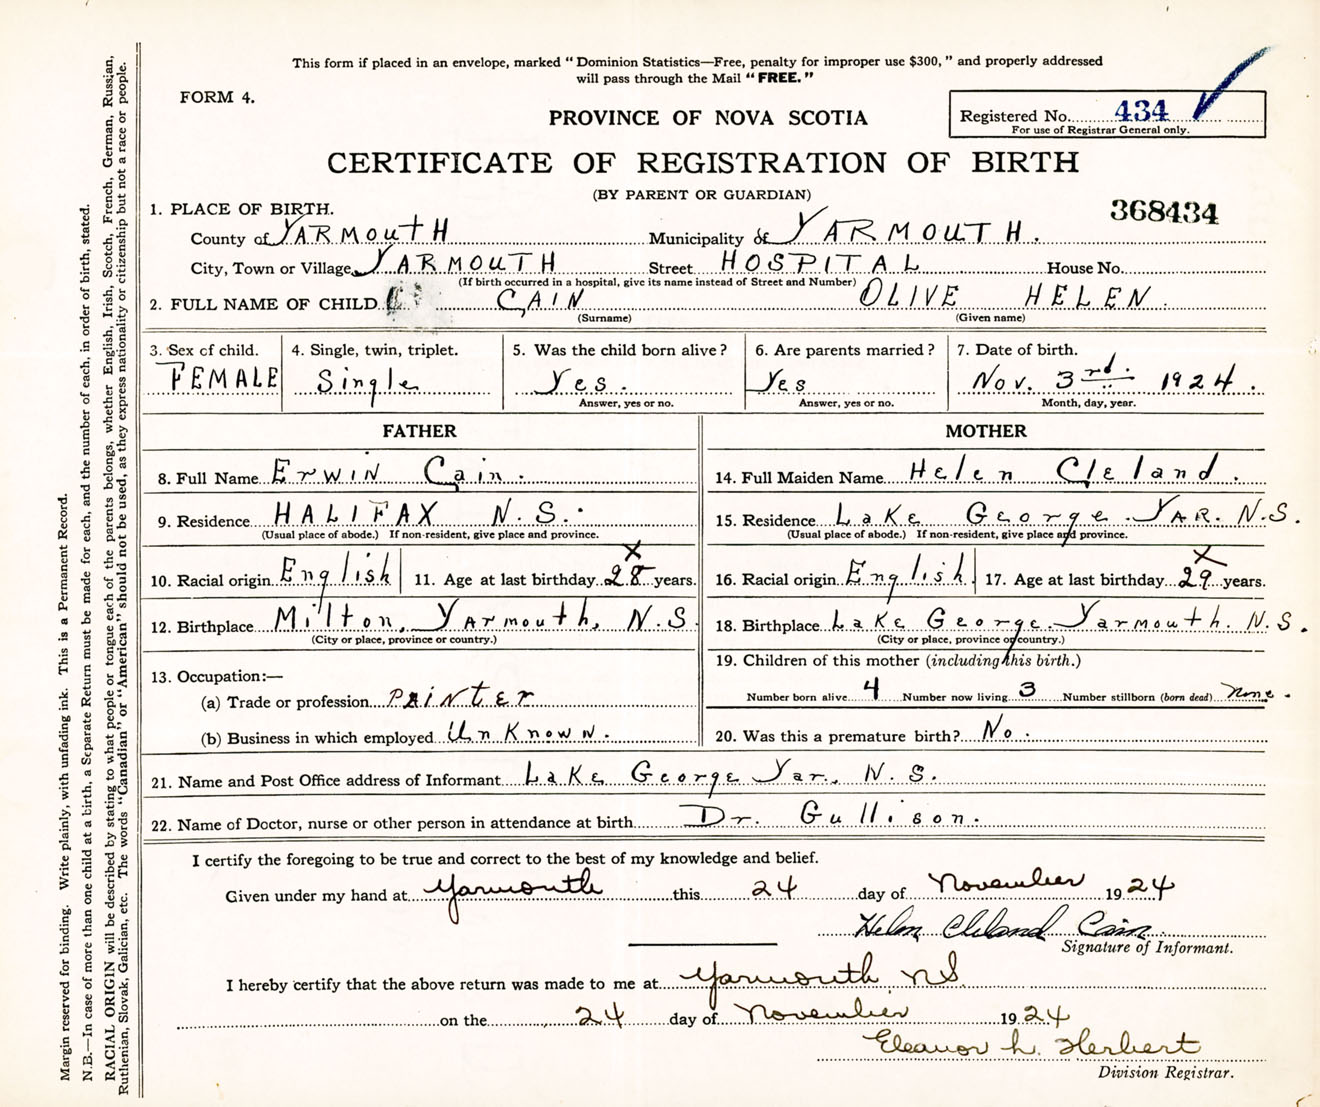 This form if placed in an envelope, marked "Dominion Statistics—Free, penalty for improper use $300," and properly addressed
will pass through the Mail "FREE."
FORM 4.
PROVINCE OF NOVA SCOTIA
Registered No. 434
For use of Registrar General only.
CERTIFICATE OF REGISTRATION OF BIRTH
(BY PARENT OR GUARDIAN)
368434
1. PLACE OF BIRTH.
County of YARMOUTH Municipality of YARMOUTH.
City, Town or Village YARMOUTH Street HOSPITAL House No.
(If birth occurred in a hospital, give its name instead of Street and Number)
2. FULL NAME OF CHILD CAIN OLIVE HELEN.
(Surname) (Given name)
3. Sex of child. 4. Single, twin, triplet. 5. Was the child born alive? 6. Are parents married? 7. Date of birth.
FEMALE Single Yes. Yes Nov. 3rd. 1924.
Answer, yes or no. Answer, yes or no. Month, day, year.
FATHER MOTHER
8. Full Name Erwin Cain. 14. Full Maiden Name Helen Cleland.
9. Residence HALIFAX N.S. 15. Residence Lake George. YAR. N.S.
(Usual place of abode.) If non-resident, give place and province. (Usual place of abode.) If non-resident, give place and province.
10. Racial origin English 11. Age at last birthday 28 years. 16. Racial origin English 17. Age at last birthday 29 years.
X X
12. Birthplace Milton, Yarmouth, N.S 18. Birthplace Lake George. Yarmouth. N.S.
(City or place, province or country.) (City or place, province or country.)
13. Occupation:— 19. Children of this mother (including this birth.)
(a) Trade or profession PAiNtEr Number born alive 4 Number now living 3 Number stillborn (born dead) none.
(b) Business in which employed UnKnowN. 20. Was this a premature birth? No.
21. Name and Post Office address of Informant Lake George Yar., N.S.
22. Name of Doctor, nurse or other person in attendance at birth Dr. Gullison.
I certify the foregoing to be true and correct to the best of my knowledge and belief.
Given under my hand at Yarmouth this 24 day of November 1924
Helen Cleland Cain
Signature of Informant.
I hereby certify that the above return was made to me at Yarmouth NS
on the 24 day of November 1924
Eleanor L. Herbert
Division Registrar.
Margin reserved for binding. Write plainly, with unfading ink. This is a Permanent Record.
N.B.—In case of more than one child at a birth, a Separate Return must be made for each, and the number of each, in order of birth, stated.
RACIAL ORIGIN will be described by stating to what people or tongue each of the parents belongs, whether English, Irish, Scotch, French, German, Russian,
Ruthenian, Slovak, Galician, etc. The words "Canadian" or "American" should not be used, as they express nationality or citizenship but not a race or people.